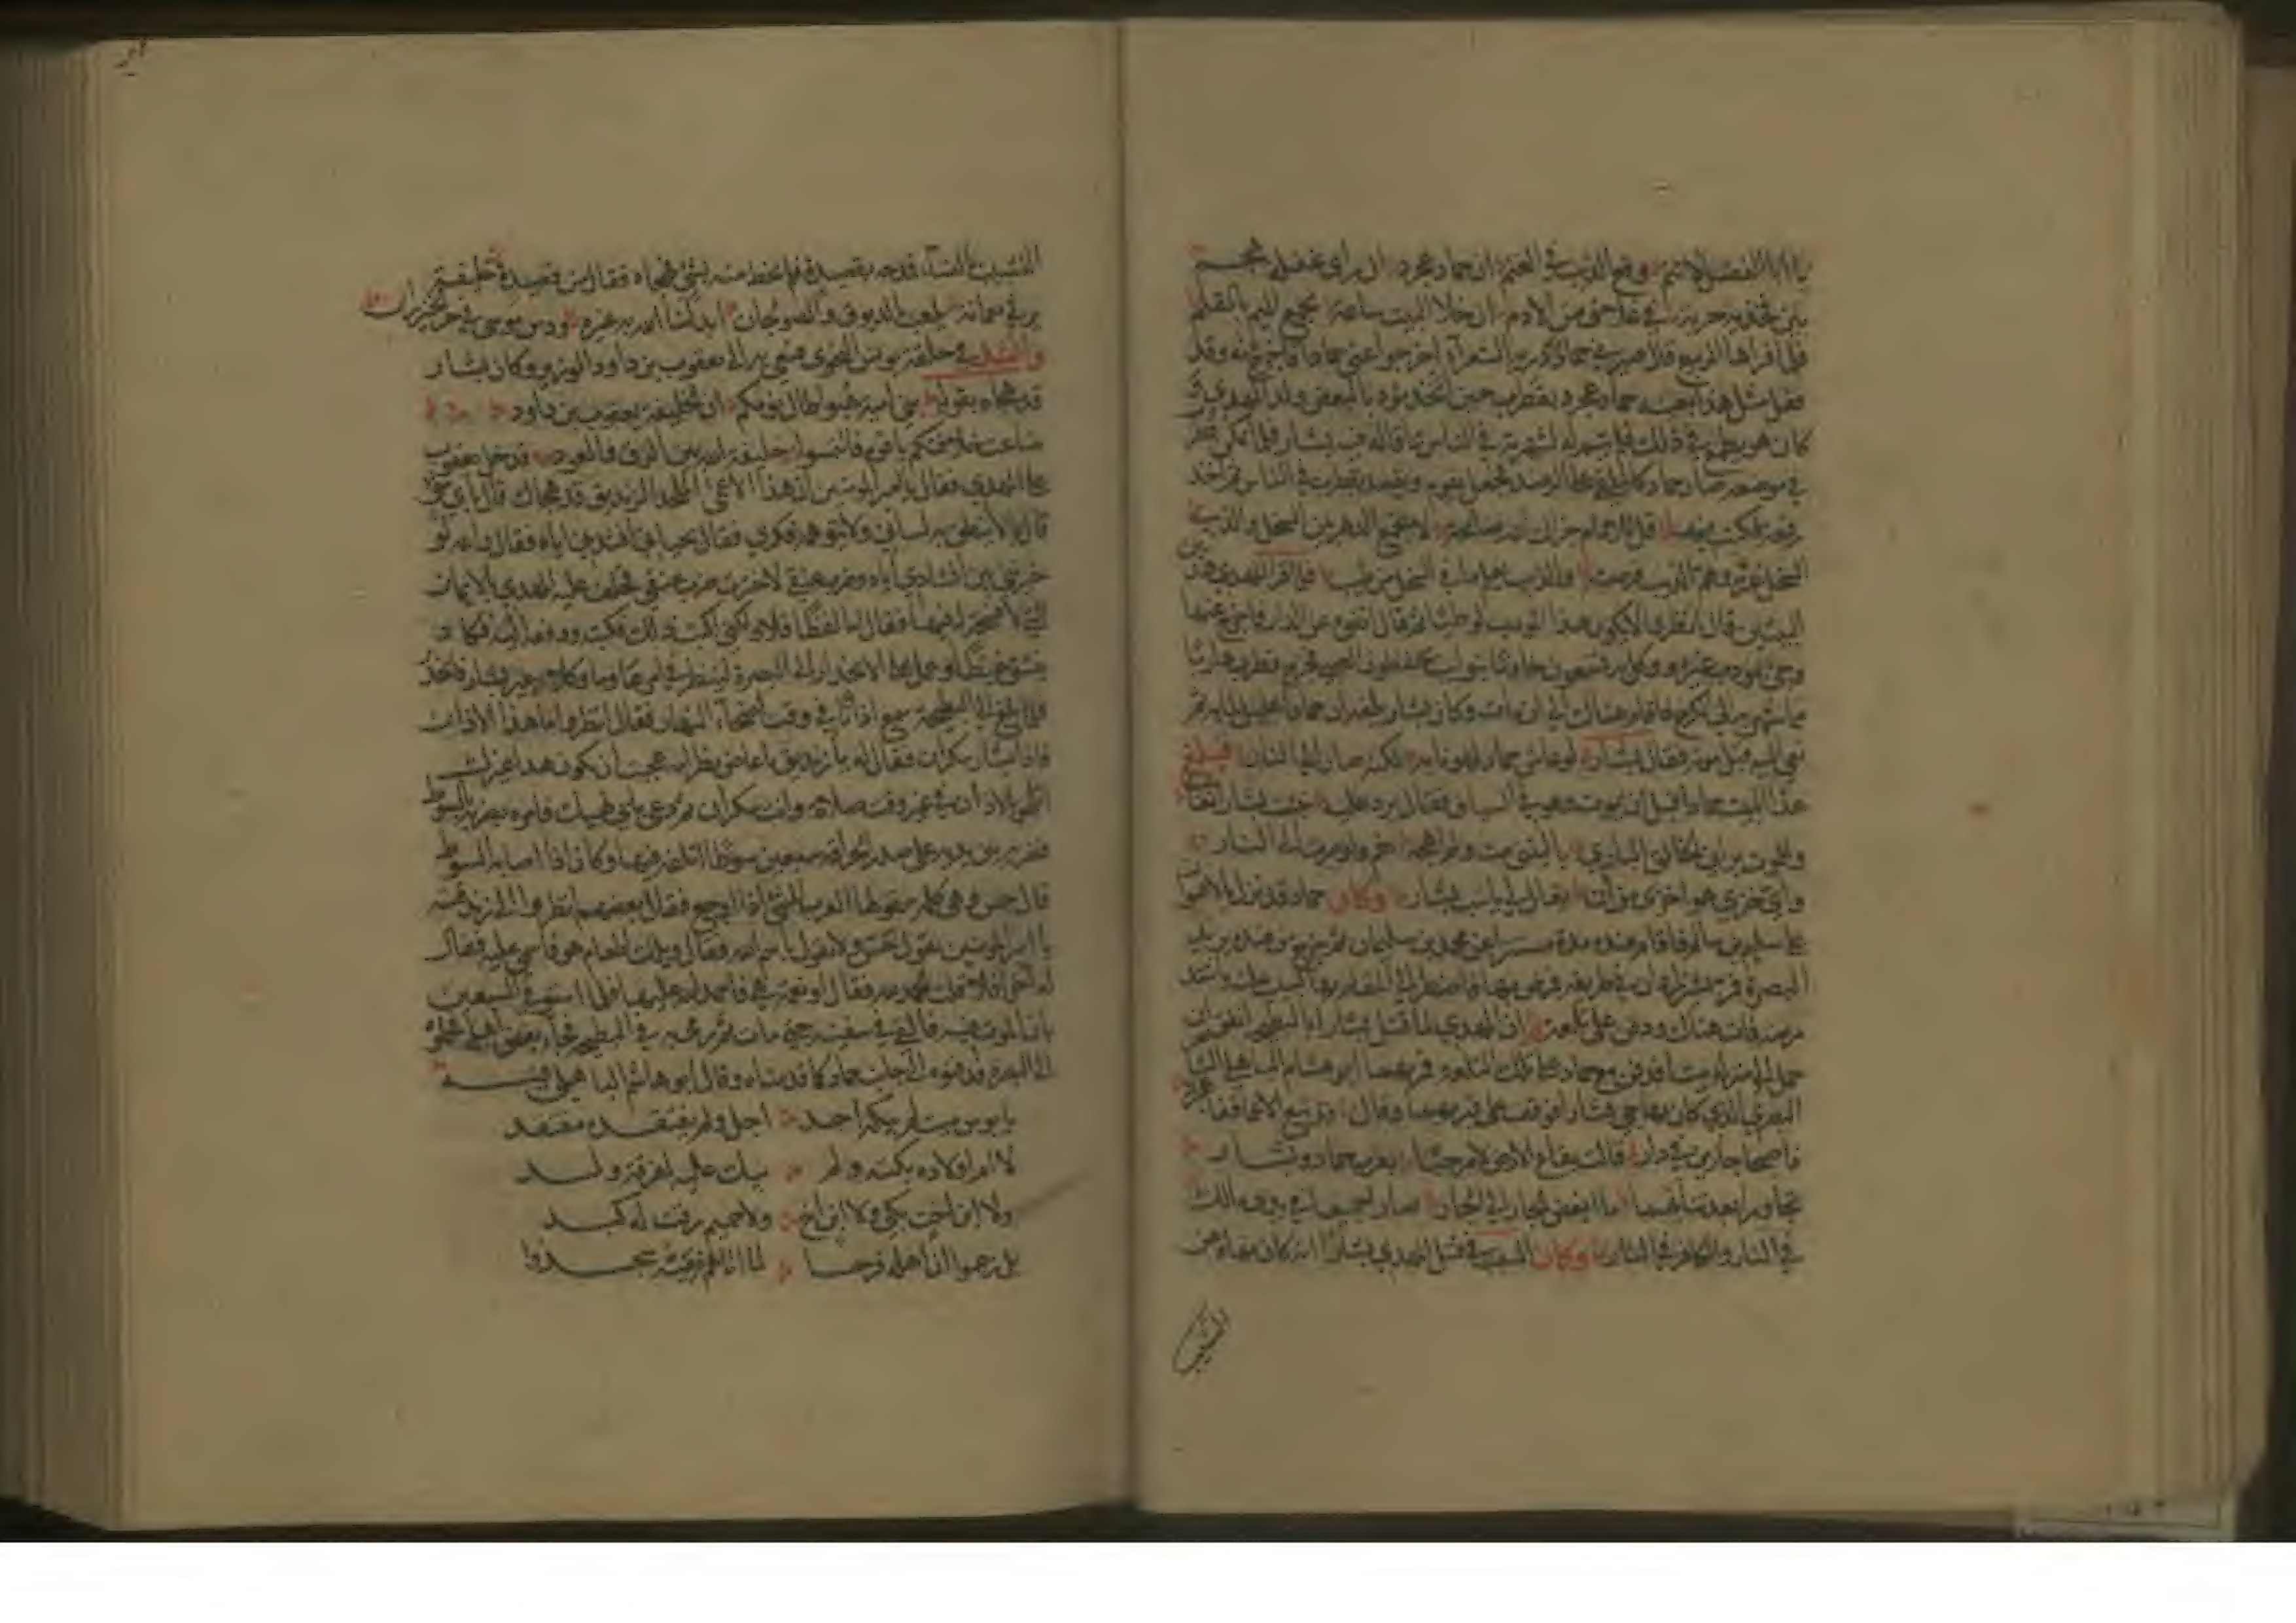 يا ابا الفضل لا تنم وقع الذيب في الغنم ان حماد عجرد ان راى غفلة هجم
بين فخذيه حربة في غلاف من الادم ان خلا البيت ساعة مجمج الميم بالقلم
فلما قراها الربيع قال صير في حماد دريه الشعرآء اخرجوا عني حمادا فاخرج وقد
فعل مثل هذا بعينه حماد عجرد بقطرب حين اتخذ مؤدبا لبعض ولد المهدي
كان هو يطمع في ذلك فلم يتم له لشهرته في الناس بما قاله فيه بشار فلما تمكن
في موضعه صار حماد كالملقى على الرصد فجعل يقوم ويقعد بقطرب في الناس ثم اخذ
رقعة فكتب فيها قل للامام جزاك الله صالحة لا تجمع الدهر بين السخل والذيب
السخل غر وهم الذيب فرصته والذيب يعلم ما في السخل من طيب فلما قرا المهدي هذين
البيتين قال انظروا لا يكون هذا المودب لوطيا ثم قال انفوه عن الدار فاخرج عنها
وجئ بمودب غيره ووكل به تسعون خادما يتناوبون يحفظون الصبي فخرج قطرب هاربا
مما شهر به الى الكرج فاقام هناك الى ان مات وكان بشار بلغه ان حمادا عليل لما به ثم
نعي اليه قبل موته فقال بشار لو عاش حماد لهونا به لكنه صار الى النار فبلغ
هذا البيت حمادا قبل ان يموت وهو في السياق فقال يرد عليه نبئت بشارا نعاني
وللموت براني الخالق الباري يا ليتني مت ولم اهجه نعم ولو صرت الى النار
واي خزي هو اخزى من ان يقال لي يا سب بشار وكان حماد قد نزل بالاهواز
على سليم بن سالم فاقام عنده مدة مستترا من محمد بن سليمان ثم خرج من عنده يريد
البصرة فمر بشيراز في طريقه فمرض بها فاضطر الى المقام بها بسبب علته واشتد
مرضه فمات هناك ودفن على تلعة ان المهدي لما قتل بشارا بالبطيحة اتفق ان
حمل الى منزله ميتا فدفن مع حماد على تلك التلعة فمر بهما ابو هشام الباهلي الشاعر
البصري الذي كان يهاجي بشارا فوقف على قبريهما وقال قد تبع الاعمى قفا عجرد
فاصبحا جارين في دار قالت بقاع الارض لا مرحبا بقرب حماد وبشار
تجاورا بعد تنائيهما ما ابغض الجار الى الجار صارا جميعا في يدي مالك
في النار والكافر في النار وكان السبب في قتل المهدي بشارا انه كان نهاه عن
التشبيب
التشبيب بالنسآء فمدحه بقصيدة فلم يحظ منه بشئ فهجاه فقال من قصيدة خليفة
يزني بعماته يلعب بالدبوق والصولجان ابدلنا الله به غيره ودس موسى في حر الخيزران
وانشد في حلقة يونس النحوي فسعي به الى يعقوب بن داود الوزير وكان بشار
قد هجاه بقوله بني امية هبوا طال نومكم ان الخليفة يعقوب بن داود
ضاعت خلافتكم يا قوم فالتمسوا خليفة الله بين الزق والعود فدخل يعقوب
على المهدي فقال يا امير المومنين ان هذا الاعمى الملحد الزنديق قد هجاك قال باي شئ
قال بما لا ينطق به لساني ولا يتوهمه فكري فقال بحياتي انشدني اياه فقال والله لو
خيرتني بين انشادي اياه وضرب عنقي لاخترت ضرب عنقي فحلف عليه المهدي بالايمان
التي لا فسحة له فيها فقال اما لفظا فلا ولكني اكتب ذلك فكتبه ودفعه اليه فكاد
ينشق غيظا وعمل على الانحدار الى البصرة لينظر في امرها وما وكده غير بشار فانحدر
فلما بلغ الى البطيحة سمع اذانا في وقت ضحاء النهار فقال انظروا ما هذا الاذان
فاذا بشار سكران فقال له يا زنديق يا عاض بظر امه عجبت ان يكون هذا غيرك
اتلهو بالاذان في غير وقت صلاة وانت سكران ثم دعى بابن نهيك فامره بضربه بالسوط
فضربه بين يديه على صدر الحراقة سبعين سوطا اتلفه فيها وكان اذا اصابه السوط
قال حس وهي كلمة تقولها العرب للشئ اذا اوجع فقال بعضهم انظروا الى زندقته
يا امير المومنين يقول حس ولا يقول بسم الله فقال ويلك اطعام هو فاسمي عليه فقال
له اخر افلا قلت الحمد لله فقال او نعمة هي فاحمد الله عليها فلما استوفى السبعين
بان الموت فيه فالقي في سفينة حتى مات ثم رمي به في البطيحة فجاء بعض اهله فحملوه
الى البصرة فدفنوه الى جنب حماد كما قدمناه وقال ابو هاشم الباهلي فيه
يا بوس ميت لم يبكه احد اجل ولم يفتقده مفتقد
لا ام اولاده بكته ولم يبك عليه لفرقة ولد
ولا ابن اخت بكى ولا ابن اخ ولا حميم رقت له كبد
بل زعموا ان اهله فرحا لما اتاهم نعيه سجدوا